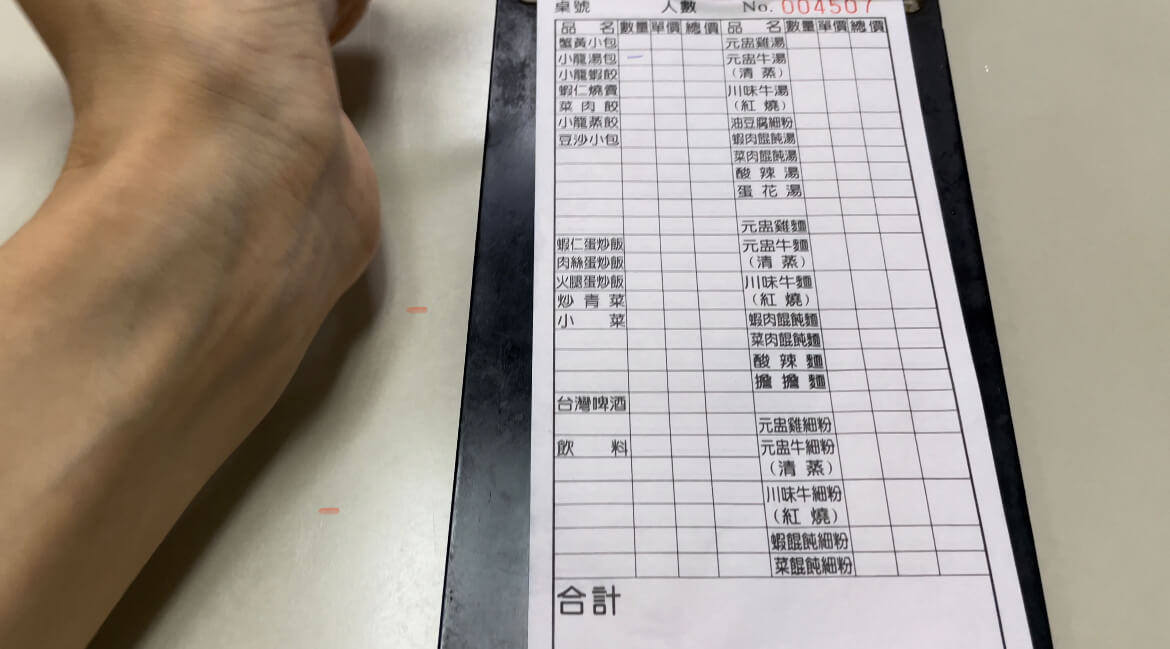 桌號 人數 No. 004507
品名 數量 單價 總價 品名 數量 單價 總價
蟹黃小包 元盅雞湯
小龍湯包 一 元盅牛湯
小龍蝦餃 (清蒸)
蝦仁燒賣 川味牛湯
菜肉餃 (紅燒)
小龍蒸餃 油豆腐細粉
豆沙小包 蝦肉餛飩湯
菜肉餛飩湯
酸辣湯
蛋花湯
元盅雞麵
蝦仁蛋炒飯 元盅牛麵
肉絲蛋炒飯 (清蒸)
火腿蛋炒飯 川味牛麵
炒青菜 (紅燒)
小菜 蝦肉餛飩麵
菜肉餛飩麵
酸辣麵
擔擔麵
台灣啤酒
元盅雞細粉
飲料 元盅牛細粉
(清蒸)
川味牛細粉
(紅燒)
蝦餛飩細粉
菜餛飩細粉
合計